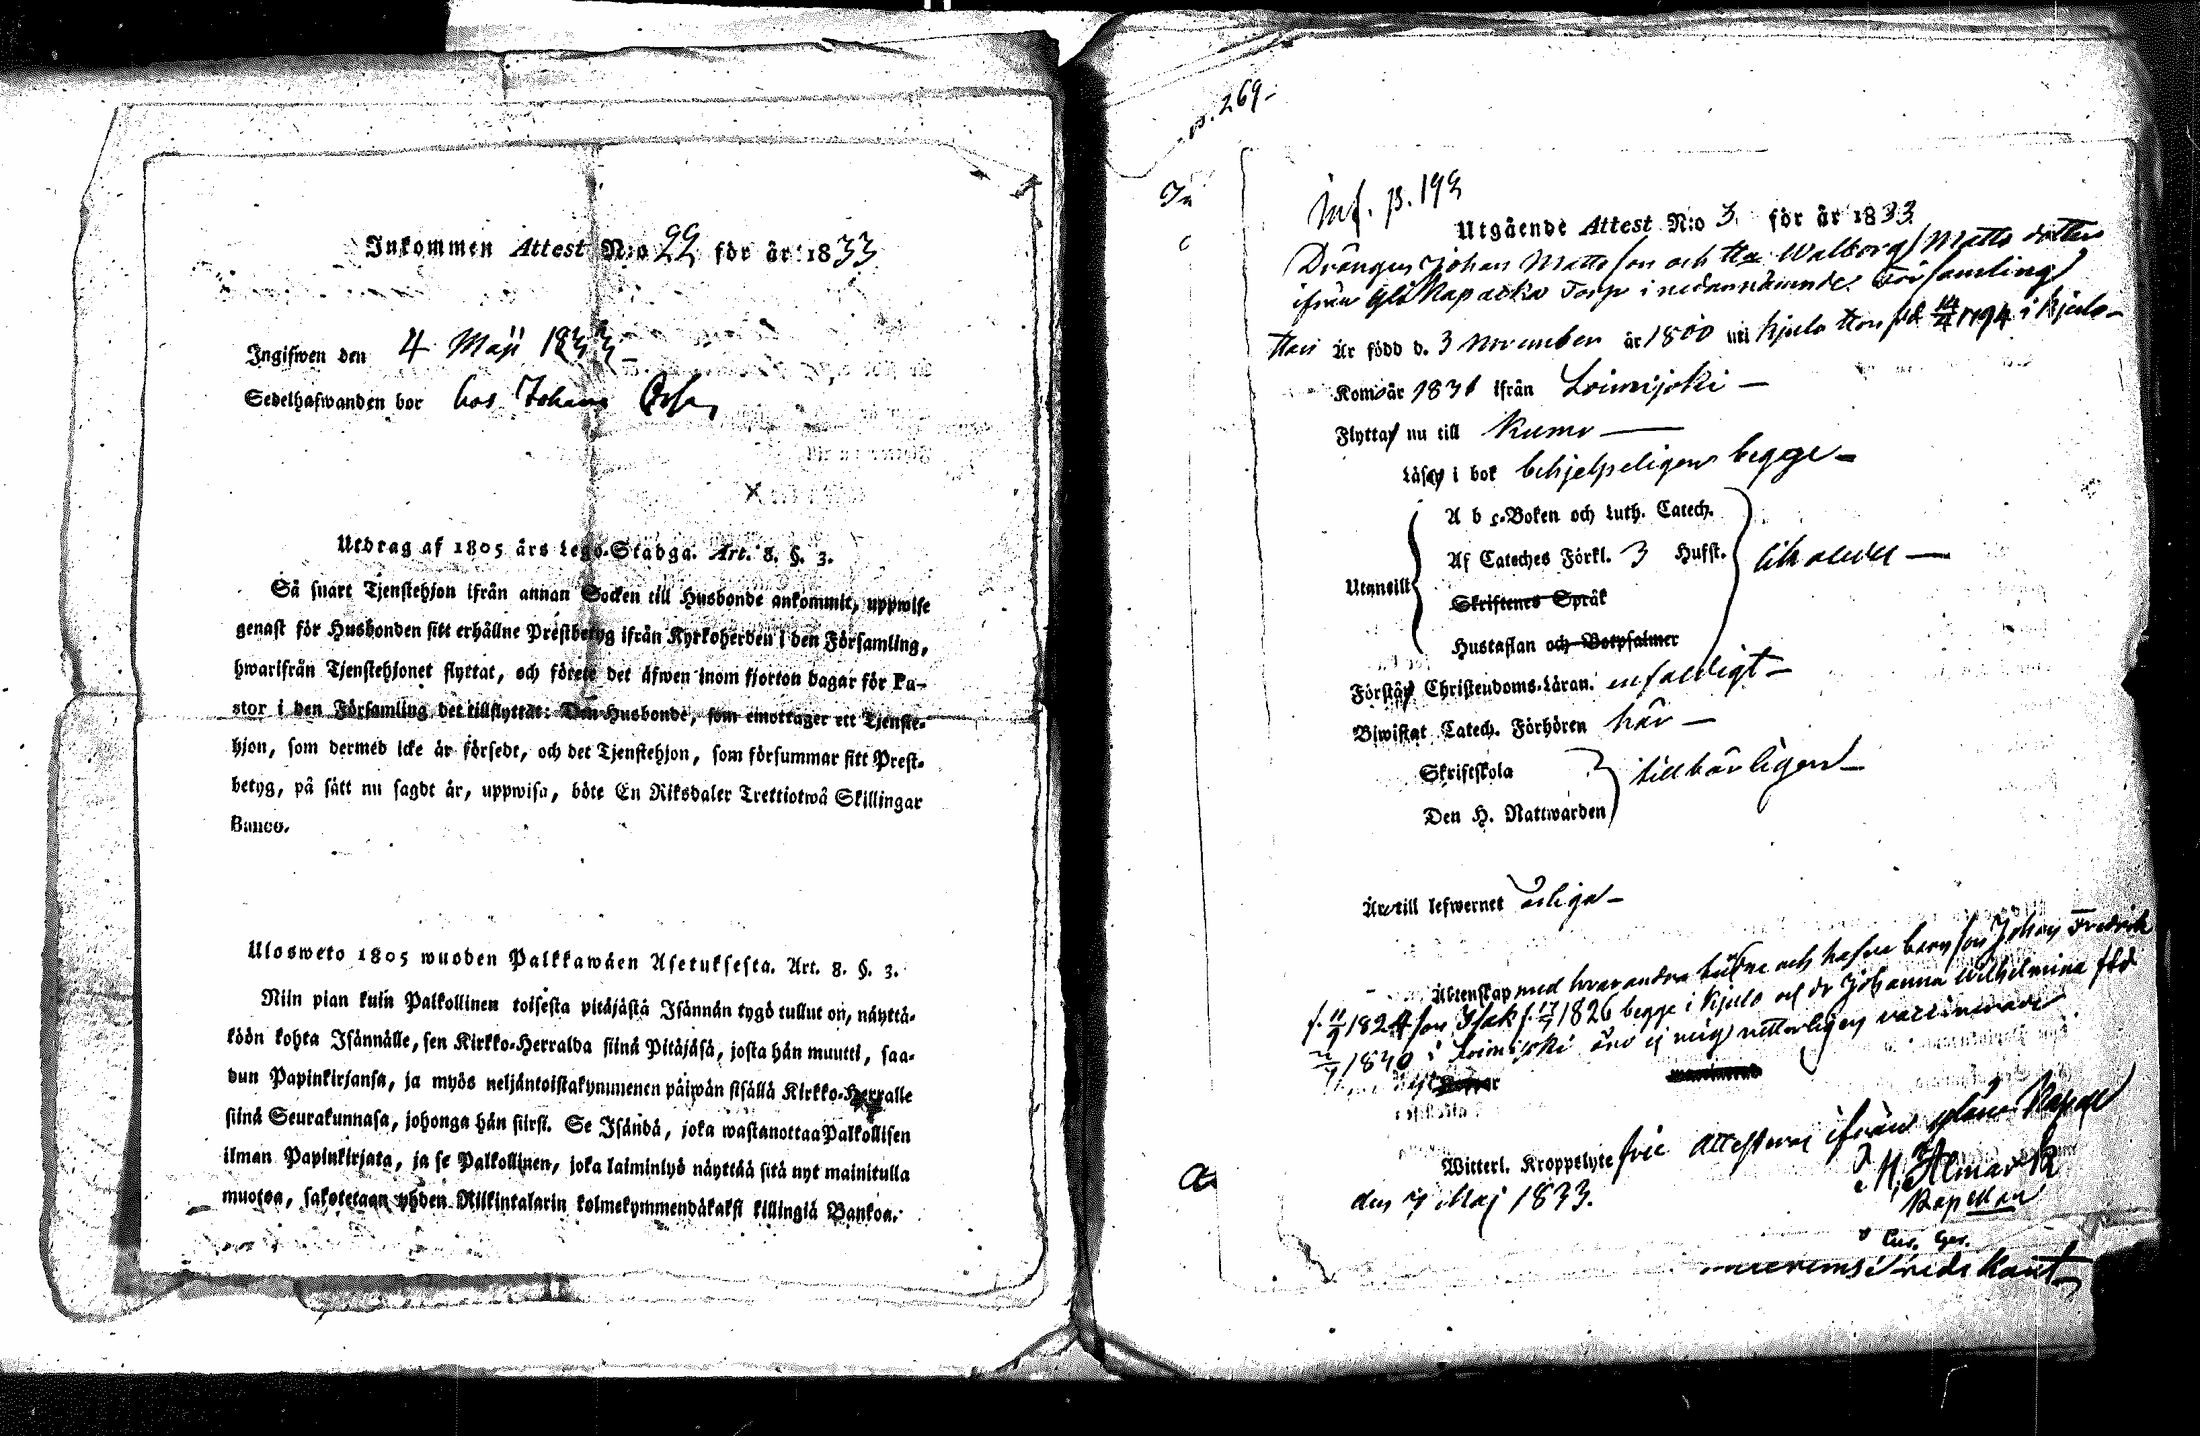 Inkommen Attest N:o 22 för år 1833
Ingifwen den 4 Maji 1833
Sedelhafwanden bor hos Johan
Utdrag af 1805 års Lego-Stadga. Art. 8. §. 3.
Så snart Tjenstehjon ifrån annan Socken till Husbonde ankommit, uppwise
genast för Husbonden sitt erhållne Prestbetyg ifrån Kyrkoherden i den Församling,
hwarifrån Tjenstehjonet flyttat, och förete det äfwen inom fjorton dagar för Pa-
stor i den Församling det tillflyttat: Den Husbonde, som emottager ett Tjenste-
hjon, som dermed icke är försedt, och det Tjenstehjon, som försummar sitt Prest-
betyg, på sätt nu sagdt är, uppwisa, böte En Riksdaler Trettiotwå Skillingar
Banco.
Ulosweto 1805 wuoden Palkkawäen Asetuksesta. Art. 8. §. 3.
Niin pian kuin Palkollinen toisesta pitäjästä Isännän tygö tullut on, näyttä-
köön kohta Isännälle, sen Kirkko-Herralda siinä Pitäjäsä, josta hän muutti, saa-
dun Papinkirjansa, ja myös neljäntoistakymmenen päiwän sisällä Kirkko-Herralle
siinä Seurakunnasa, johonga hän siirsi. Se Isändä, joka wastanottaa Palkollisen
ilman Papinkirjata, ja se Palkollinen, joka laiminlyö näyttää sitä nyt mainitulla
muotoa, sakotetaan yhden Riikintalarin kolmekymmendäkaksi killingiä Bankoa.
p. 269-
Inf. p. 193
Utgående Attest N:o 3 för år 1833
Drängen Johan Mattsson och Hu Walborg Matts dotter
ifrån Glö Kapacka Torp i nedannämnde Församling
Är född d. 3 November år 1800 uti Kjulo
Kom år 1831 ifrån Loimijoki -
Flytta nu till Kumo
Läsa i bok behjelpeligen begge -
Utantill
A b c-Boken och Luth. Catech.
Af Cateches Förkl. 3 Hufst.
Skriftenes Språk
Hustaflan och Botpsalmer
Förstå Christendoms-Läran. enfaldigt -
Biwistat Catech. Förhören här -
Skriftskola
tillbörligen -
Den H. Nattwarden
Äro till lefwernet ärliga -
Äktenskap med hvarandra och hafva barn son Johan Fredrik
1824 son Isak f. 1826 begge i Kjulo och dr Johanna Wilhelmina född
1830 i Loimijoki äro ej mig vetterligen vaccinerade
Witterl. Kroppslyte frie Attesteras ifrån
den 4 Maj 1833.
Kapellan